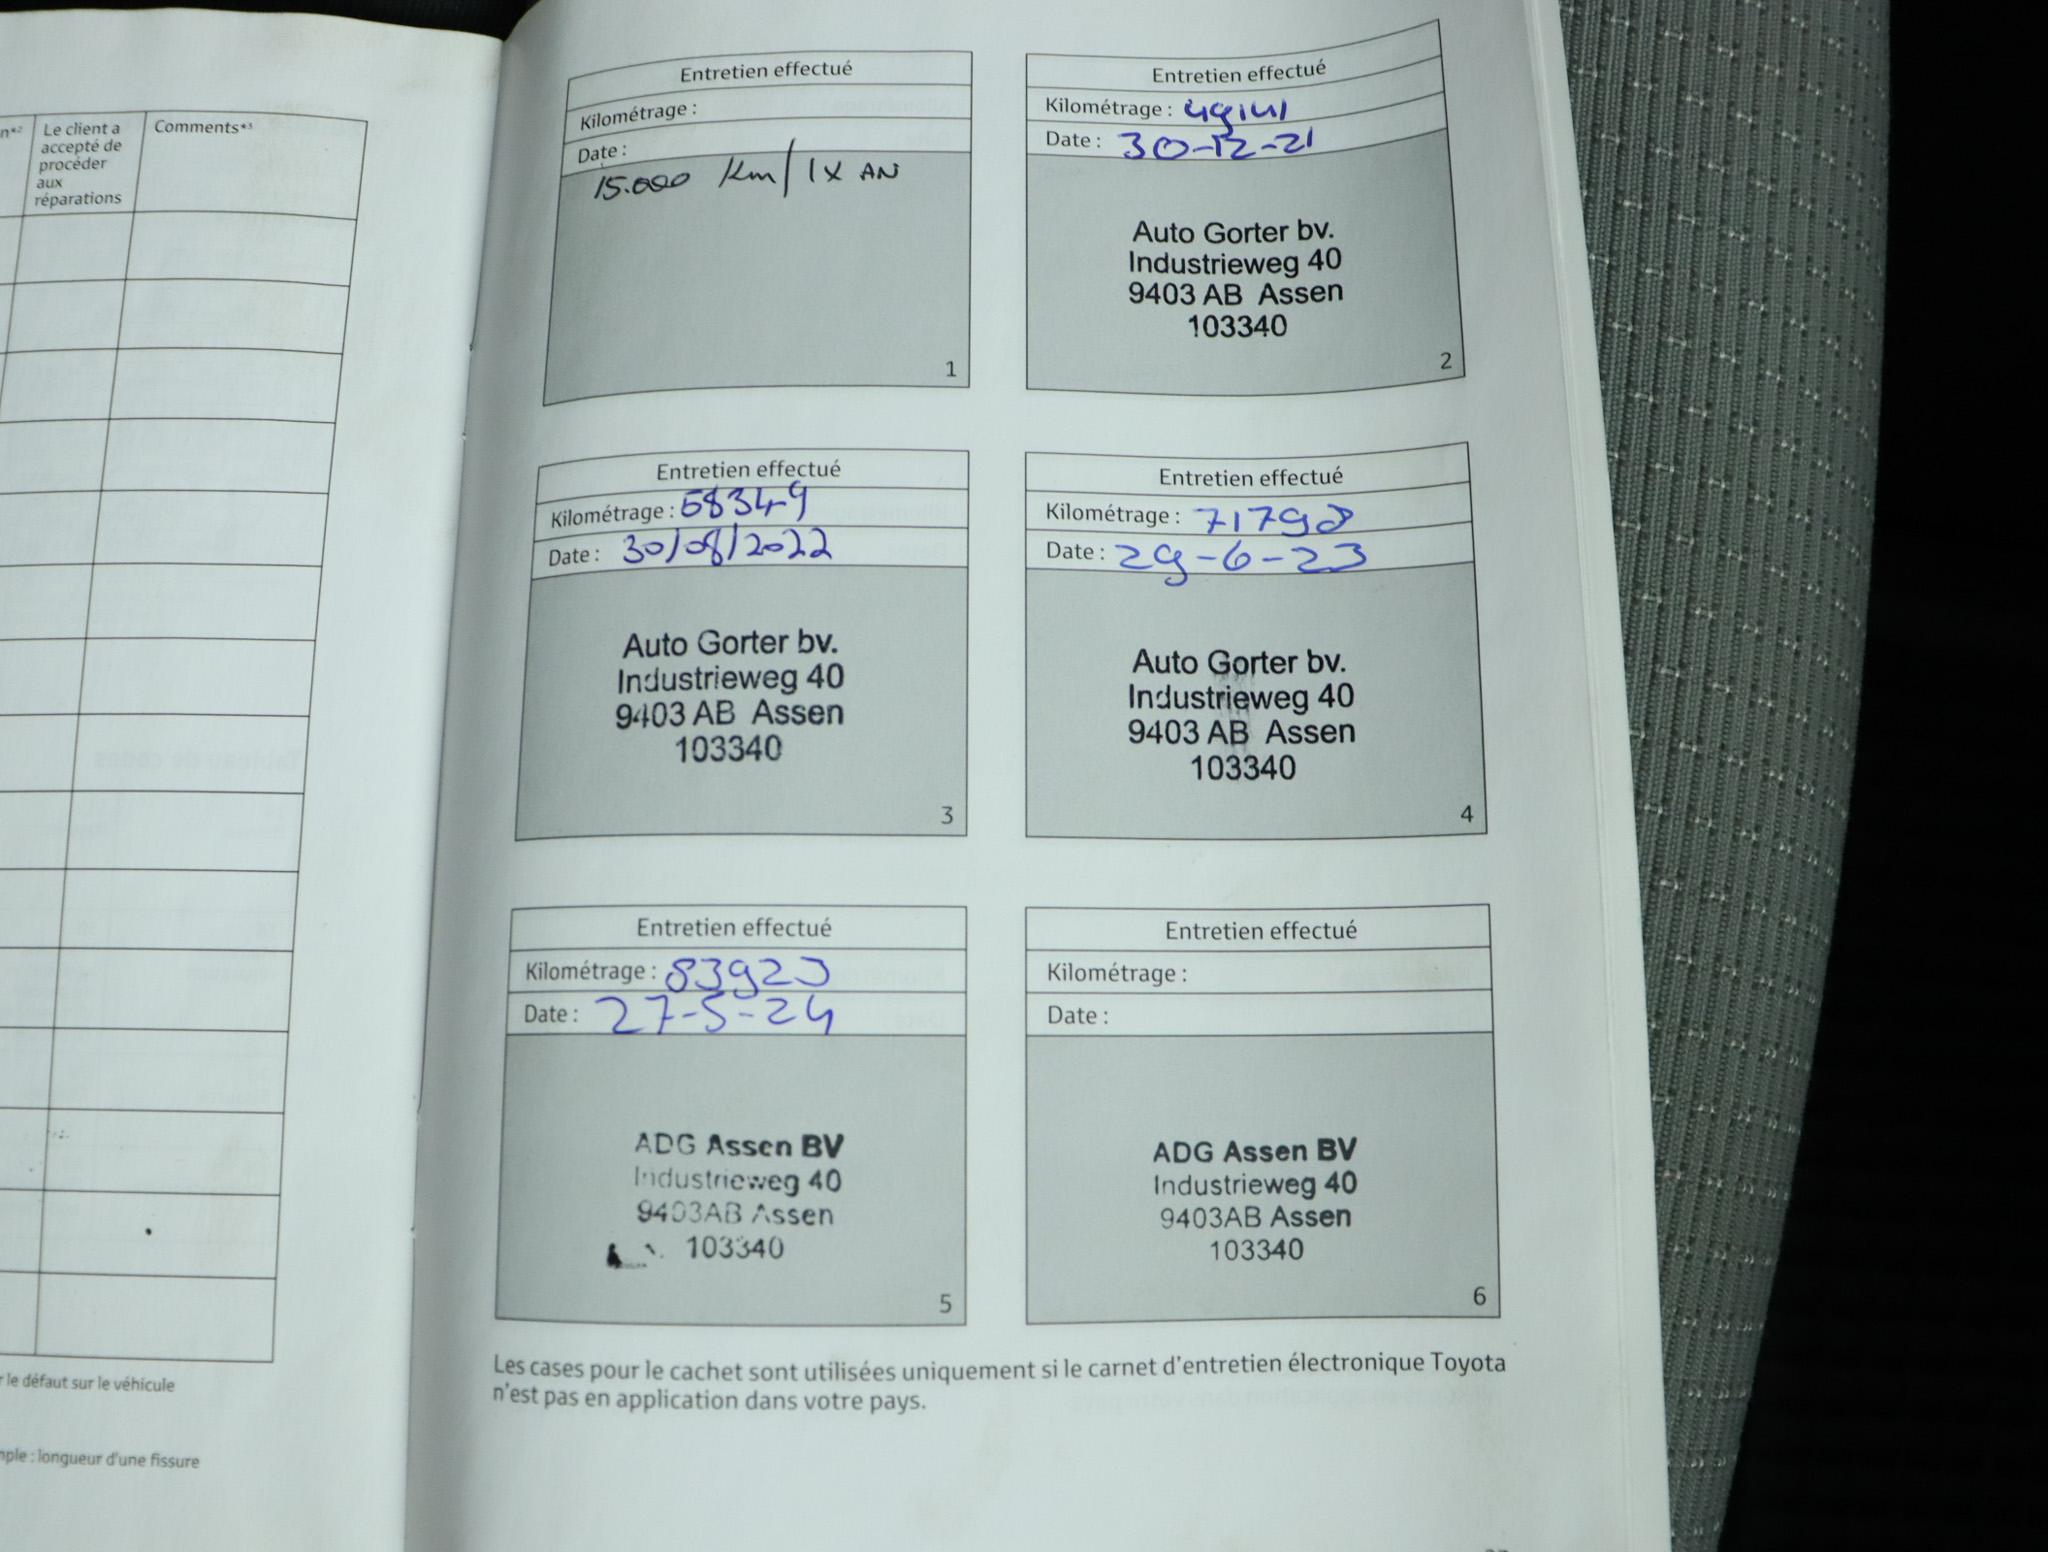 Le client a
accepté de
procéder
aux
réparations
Comments*³
le défaut sur le véhicule
longueur d'une fissure
Entretien effectué
Kilométrage :
Date :
15.000 Km/1X AN
1
Entretien effectué
Kilométrage : 49141
Date : 30-12-21
Auto Gorter bv.
Industrieweg 40
9403 AB Assen
103340
2
Entretien effectué
Kilométrage : 58349
Date : 30/08/2022
Auto Gorter bv.
Industrieweg 40
9403 AB Assen
103340
3
Entretien effectué
Kilométrage : 71798
Date : 29-6-23
Auto Gorter bv.
Industrieweg 40
9403 AB Assen
103340
4
Entretien effectué
Kilométrage : 83923
Date : 27-5-24
ADG Assen BV
Industrieweg 40
9403AB Assen
103340
5
Entretien effectué
Kilométrage :
Date :
ADG Assen BV
Industrieweg 40
9403AB Assen
103340
6
Les cases pour le cachet sont utilisées uniquement si le carnet d'entretien électronique Toyota
n'est pas en application dans votre pays.